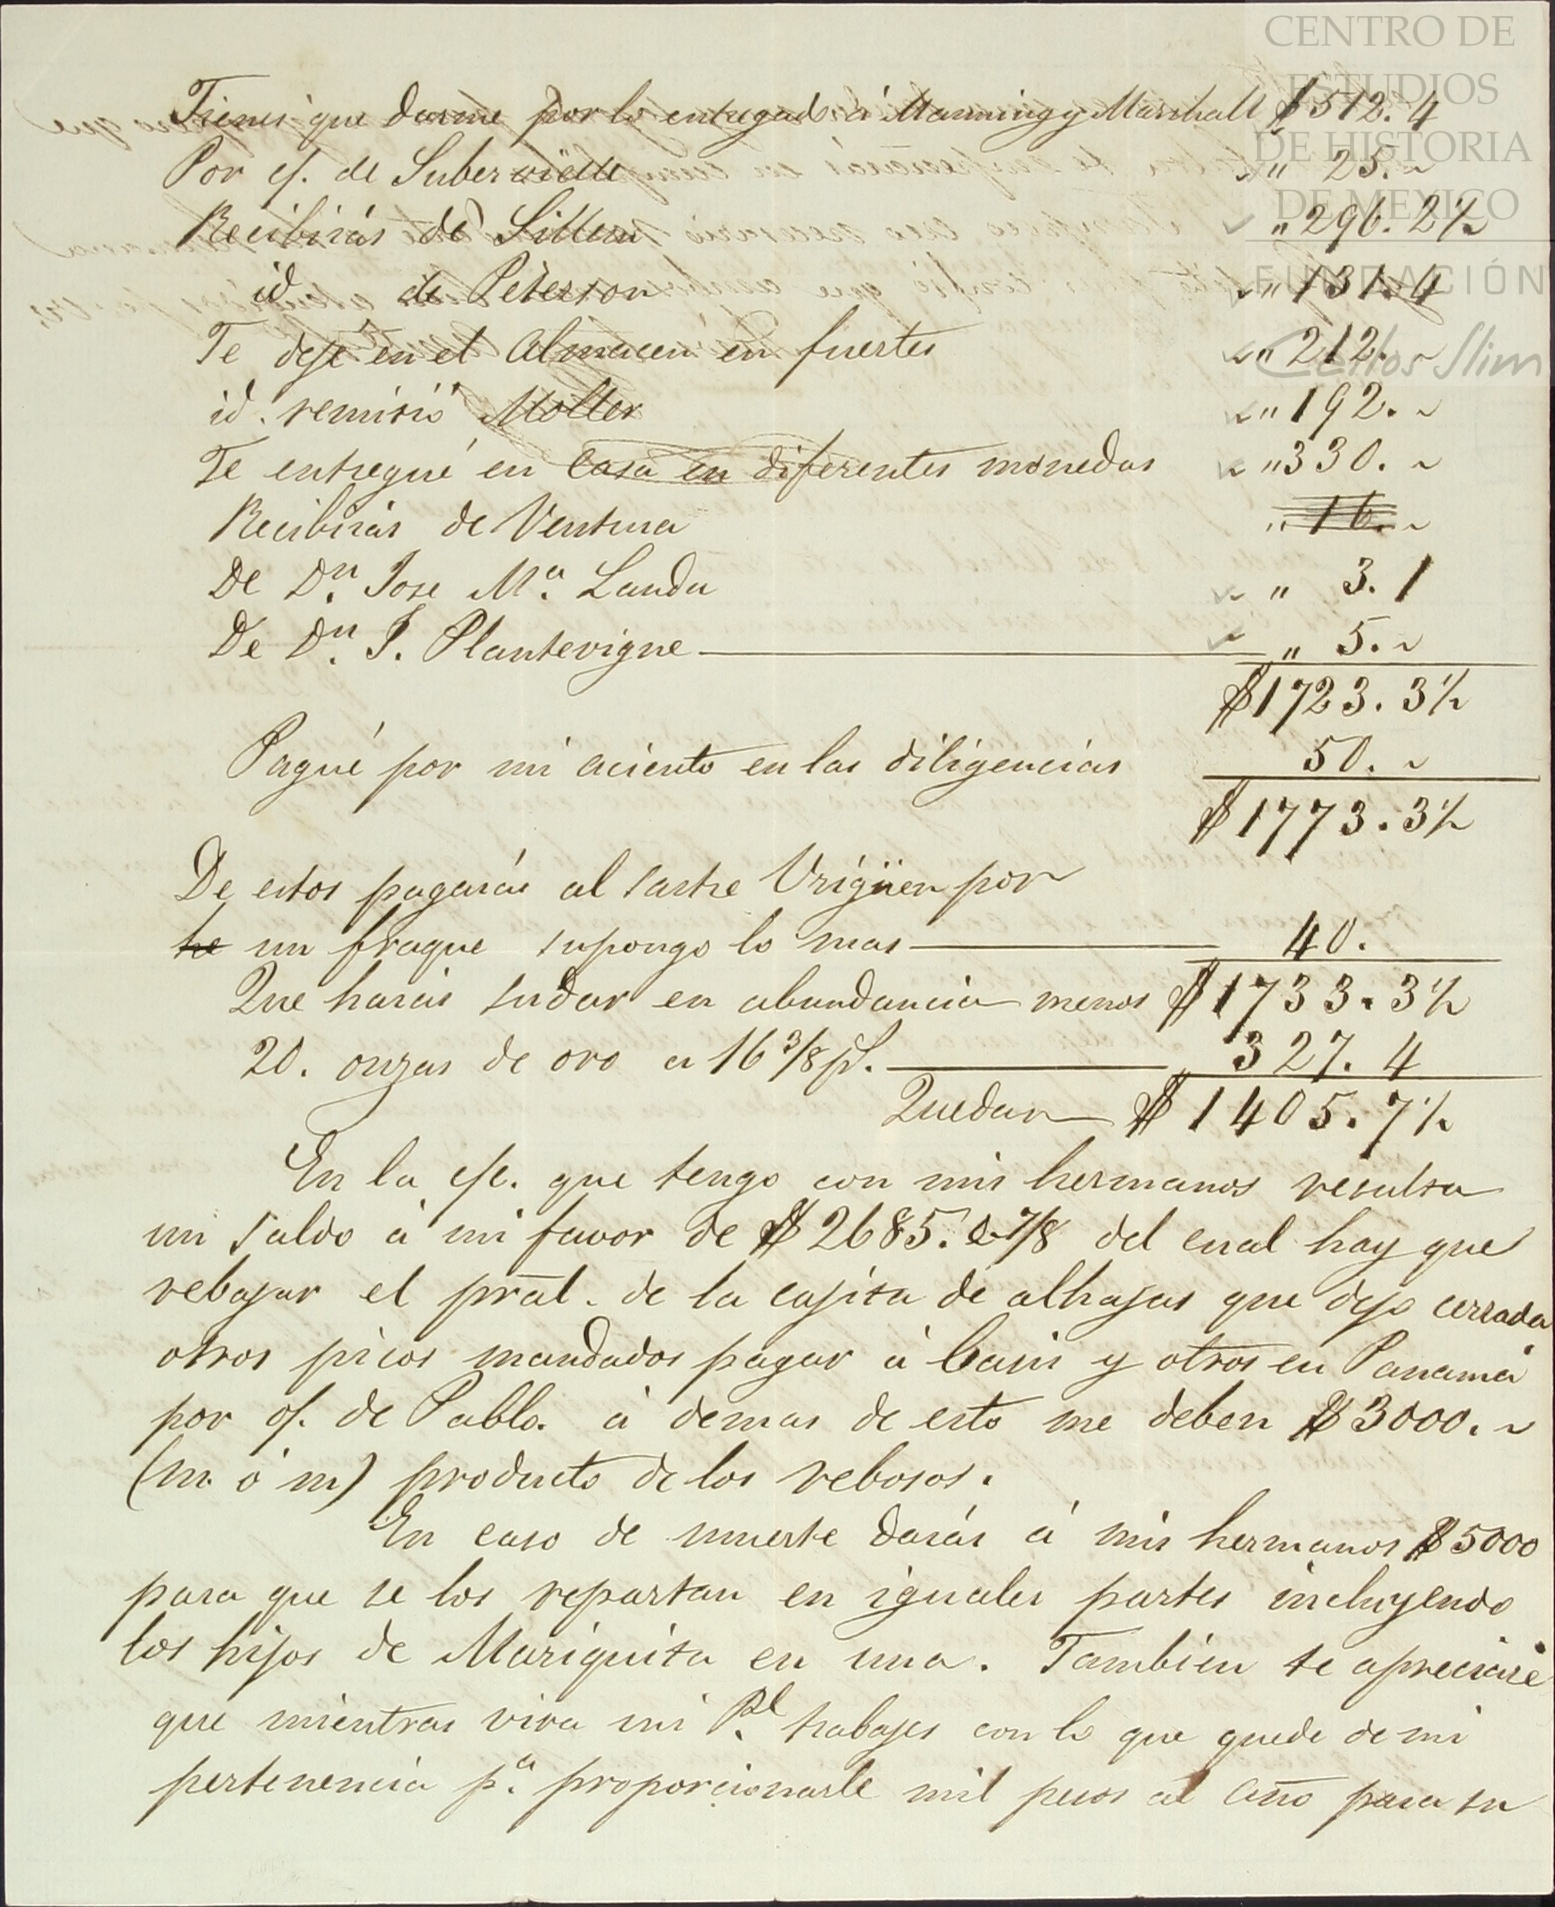 CENTRO DE
ESTUDIOS
DE HISTORIA
DE MEXICO
FUNDACIÓN
Carlos Slim
Tienes que darme por lo entregado á Manning y Marshall $ 512. 4
Por of. de Subervielle " 25. ~
Recibirás de Sillem " 296. 2½
id. de Peterson " 131. 4
Te dejé en el Almacen en fuertes " 212. ~
id. remisió Moller " 192. ~
Te entregué en Casa en diferentes monedas " 330. ~
Recibirás de Ventura " 16. ~
De Dn. Jose Ma. Landa " 3. 1
De Dn. J. Plantevigne " 5. ~
$ 1723. 3½
Pagué por mi aciento en las diligencias 50. ~
$ 1773. 3½
De estos pagarás al sastre Urigüen por
te un fraque supongo lo mas 40.
Que harás sudar en abundancia menos $ 1733. 3½
20. onzas de oro a 16 3/8 p$. 327. 4
Quedan $ 1405. 7½
En la c/c. que tengo con mis hermanos resulta
un saldo á mi favor de $ 2685. 7/8 del cual hay que
rebajar el prāl. de la cajita de alhajas que dejo cerrada
otros picos mandados pagar á Cains y otros en Panamá
por of. de Pablo. á demas de esto me deben $ 3000. ~
(m. ó m) producto de los rebosos.
En caso de muerte darás á mis hermanos $ 5000
para que se los repartan en iguales partes incluyendo
los hijos de Mariquita en una. Tambien te apreciaré
que mientras viva mi Pe. trabajes con lo que quede de mi
pertenencia pa. proporcionarle mil pesos al año para su